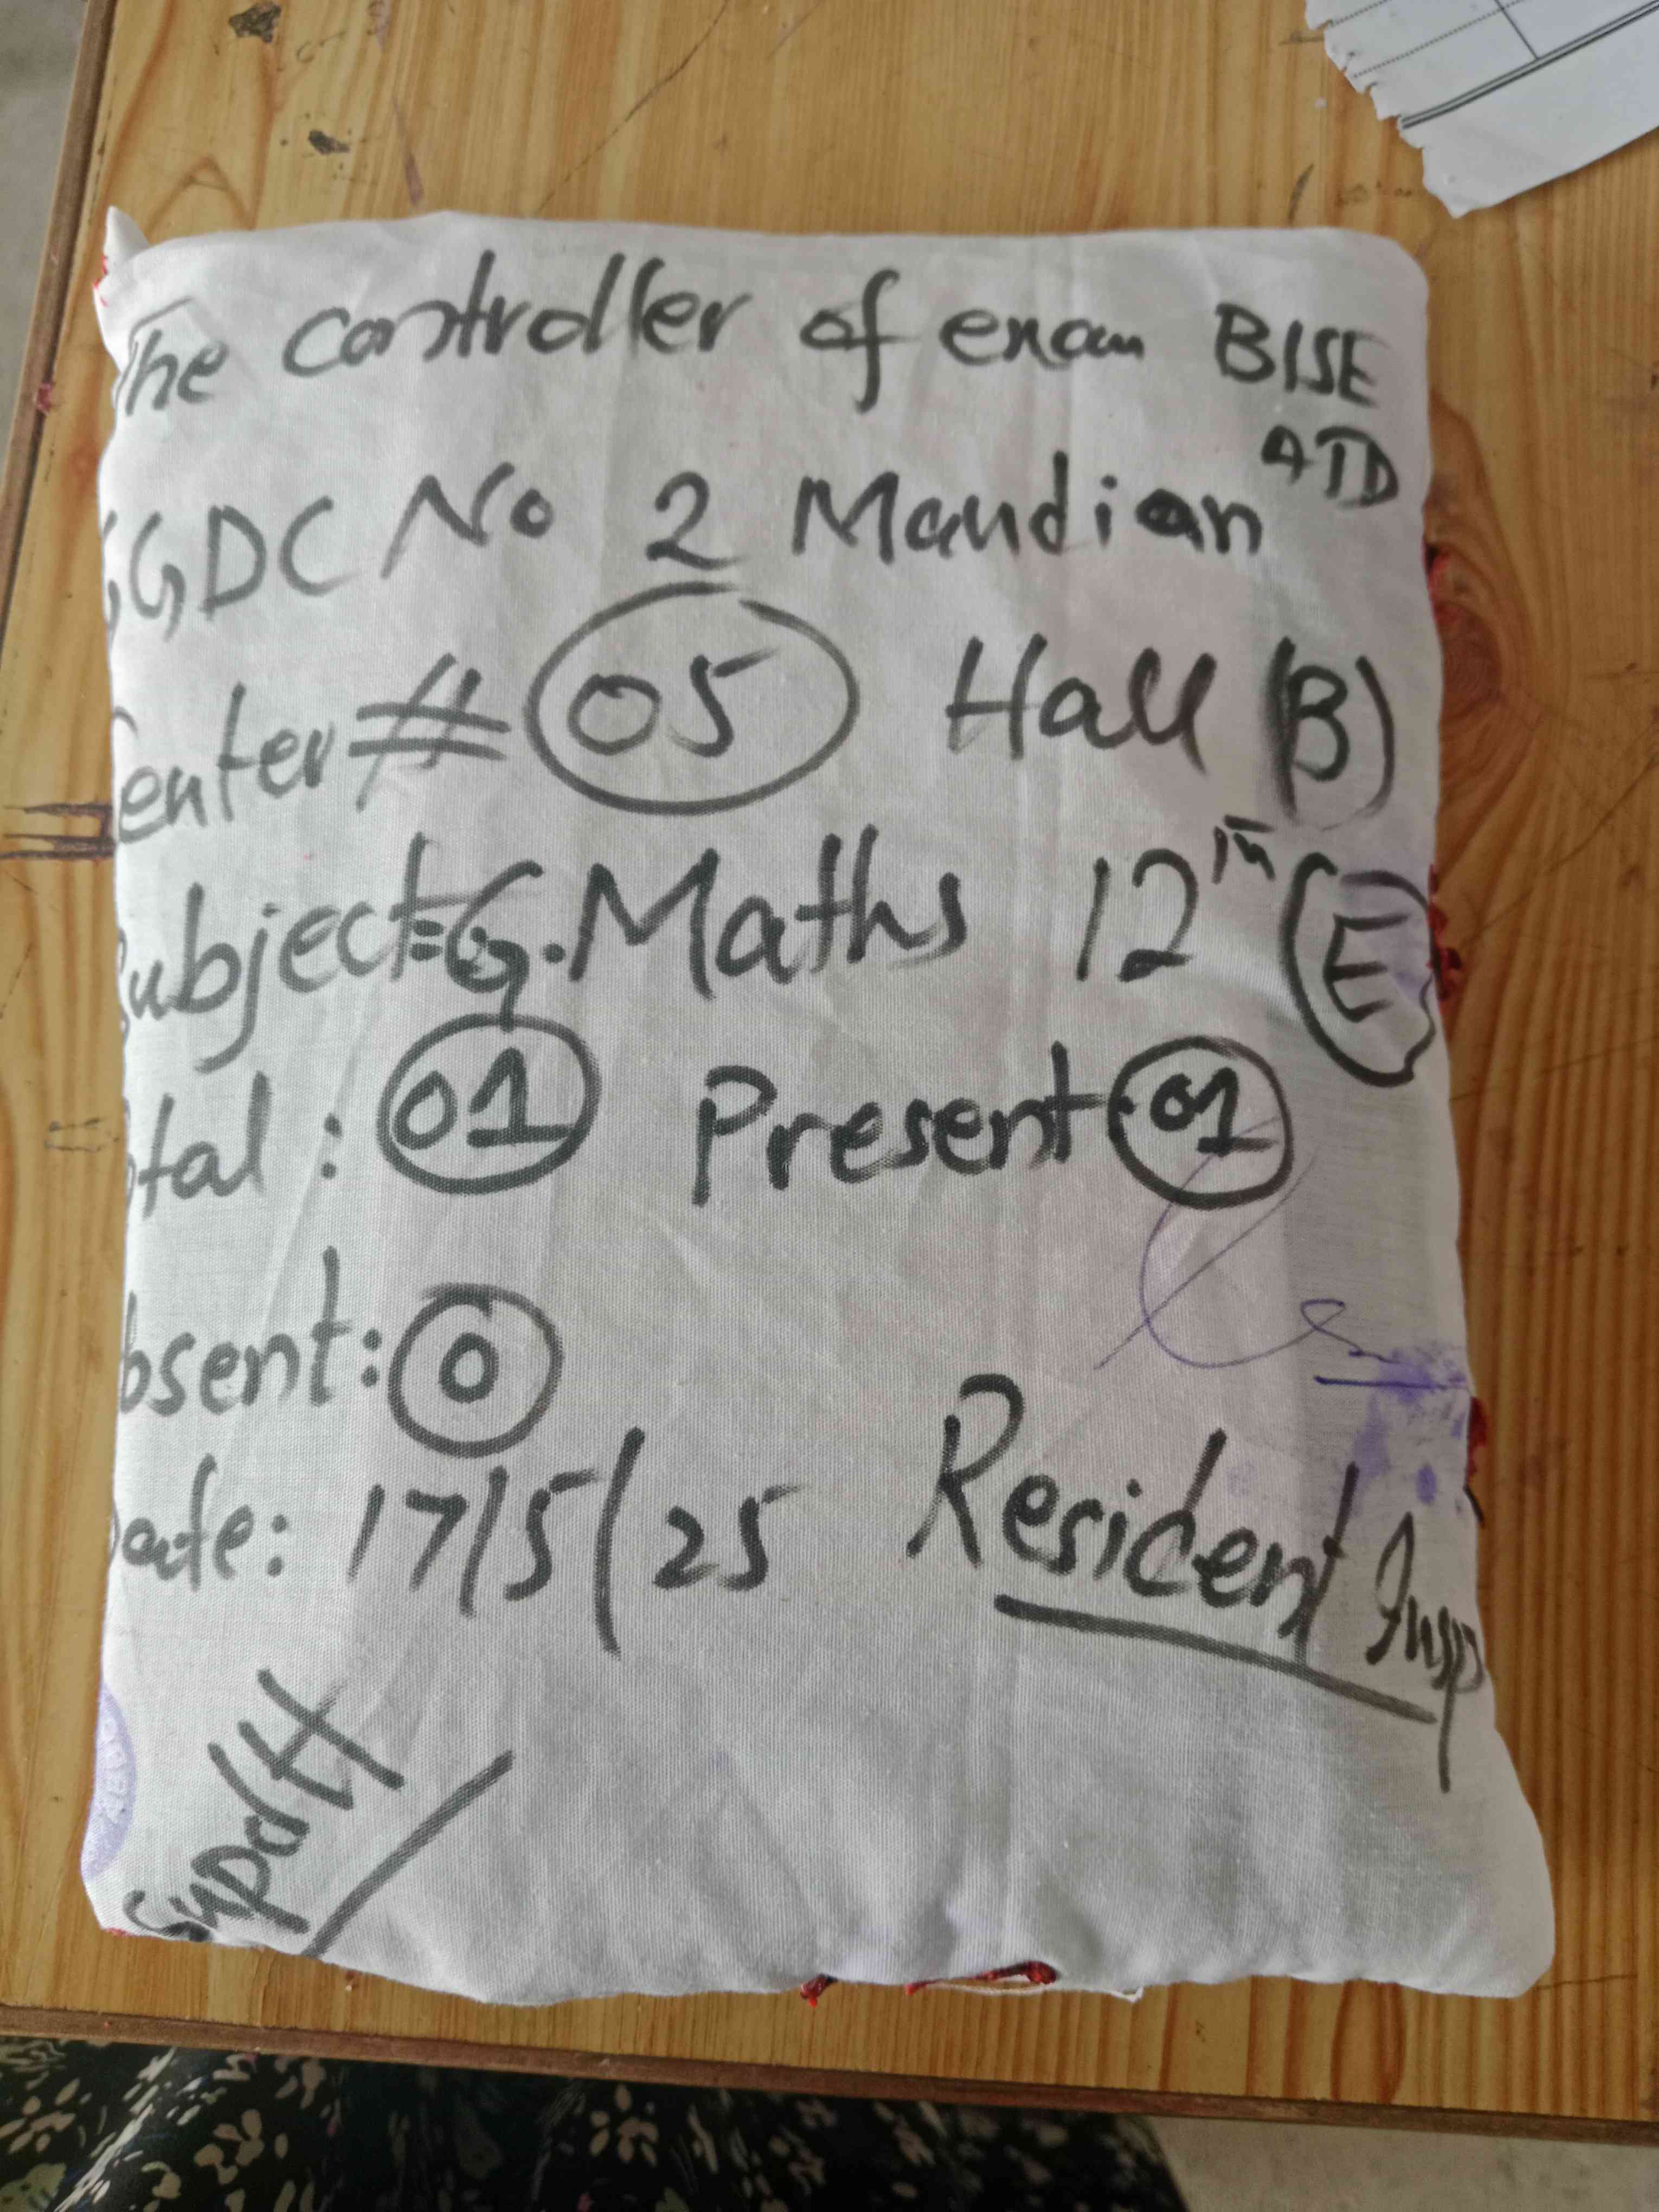 The controller of exam BISE
ATD
GGDC No 2 Mandian
Center # 05 Hall (B)
Subject:= G.Maths 12th (E)
Total : 01 Present: 01
Absent: 0
Date: 17/5/25 Resident Insp
Supdtt